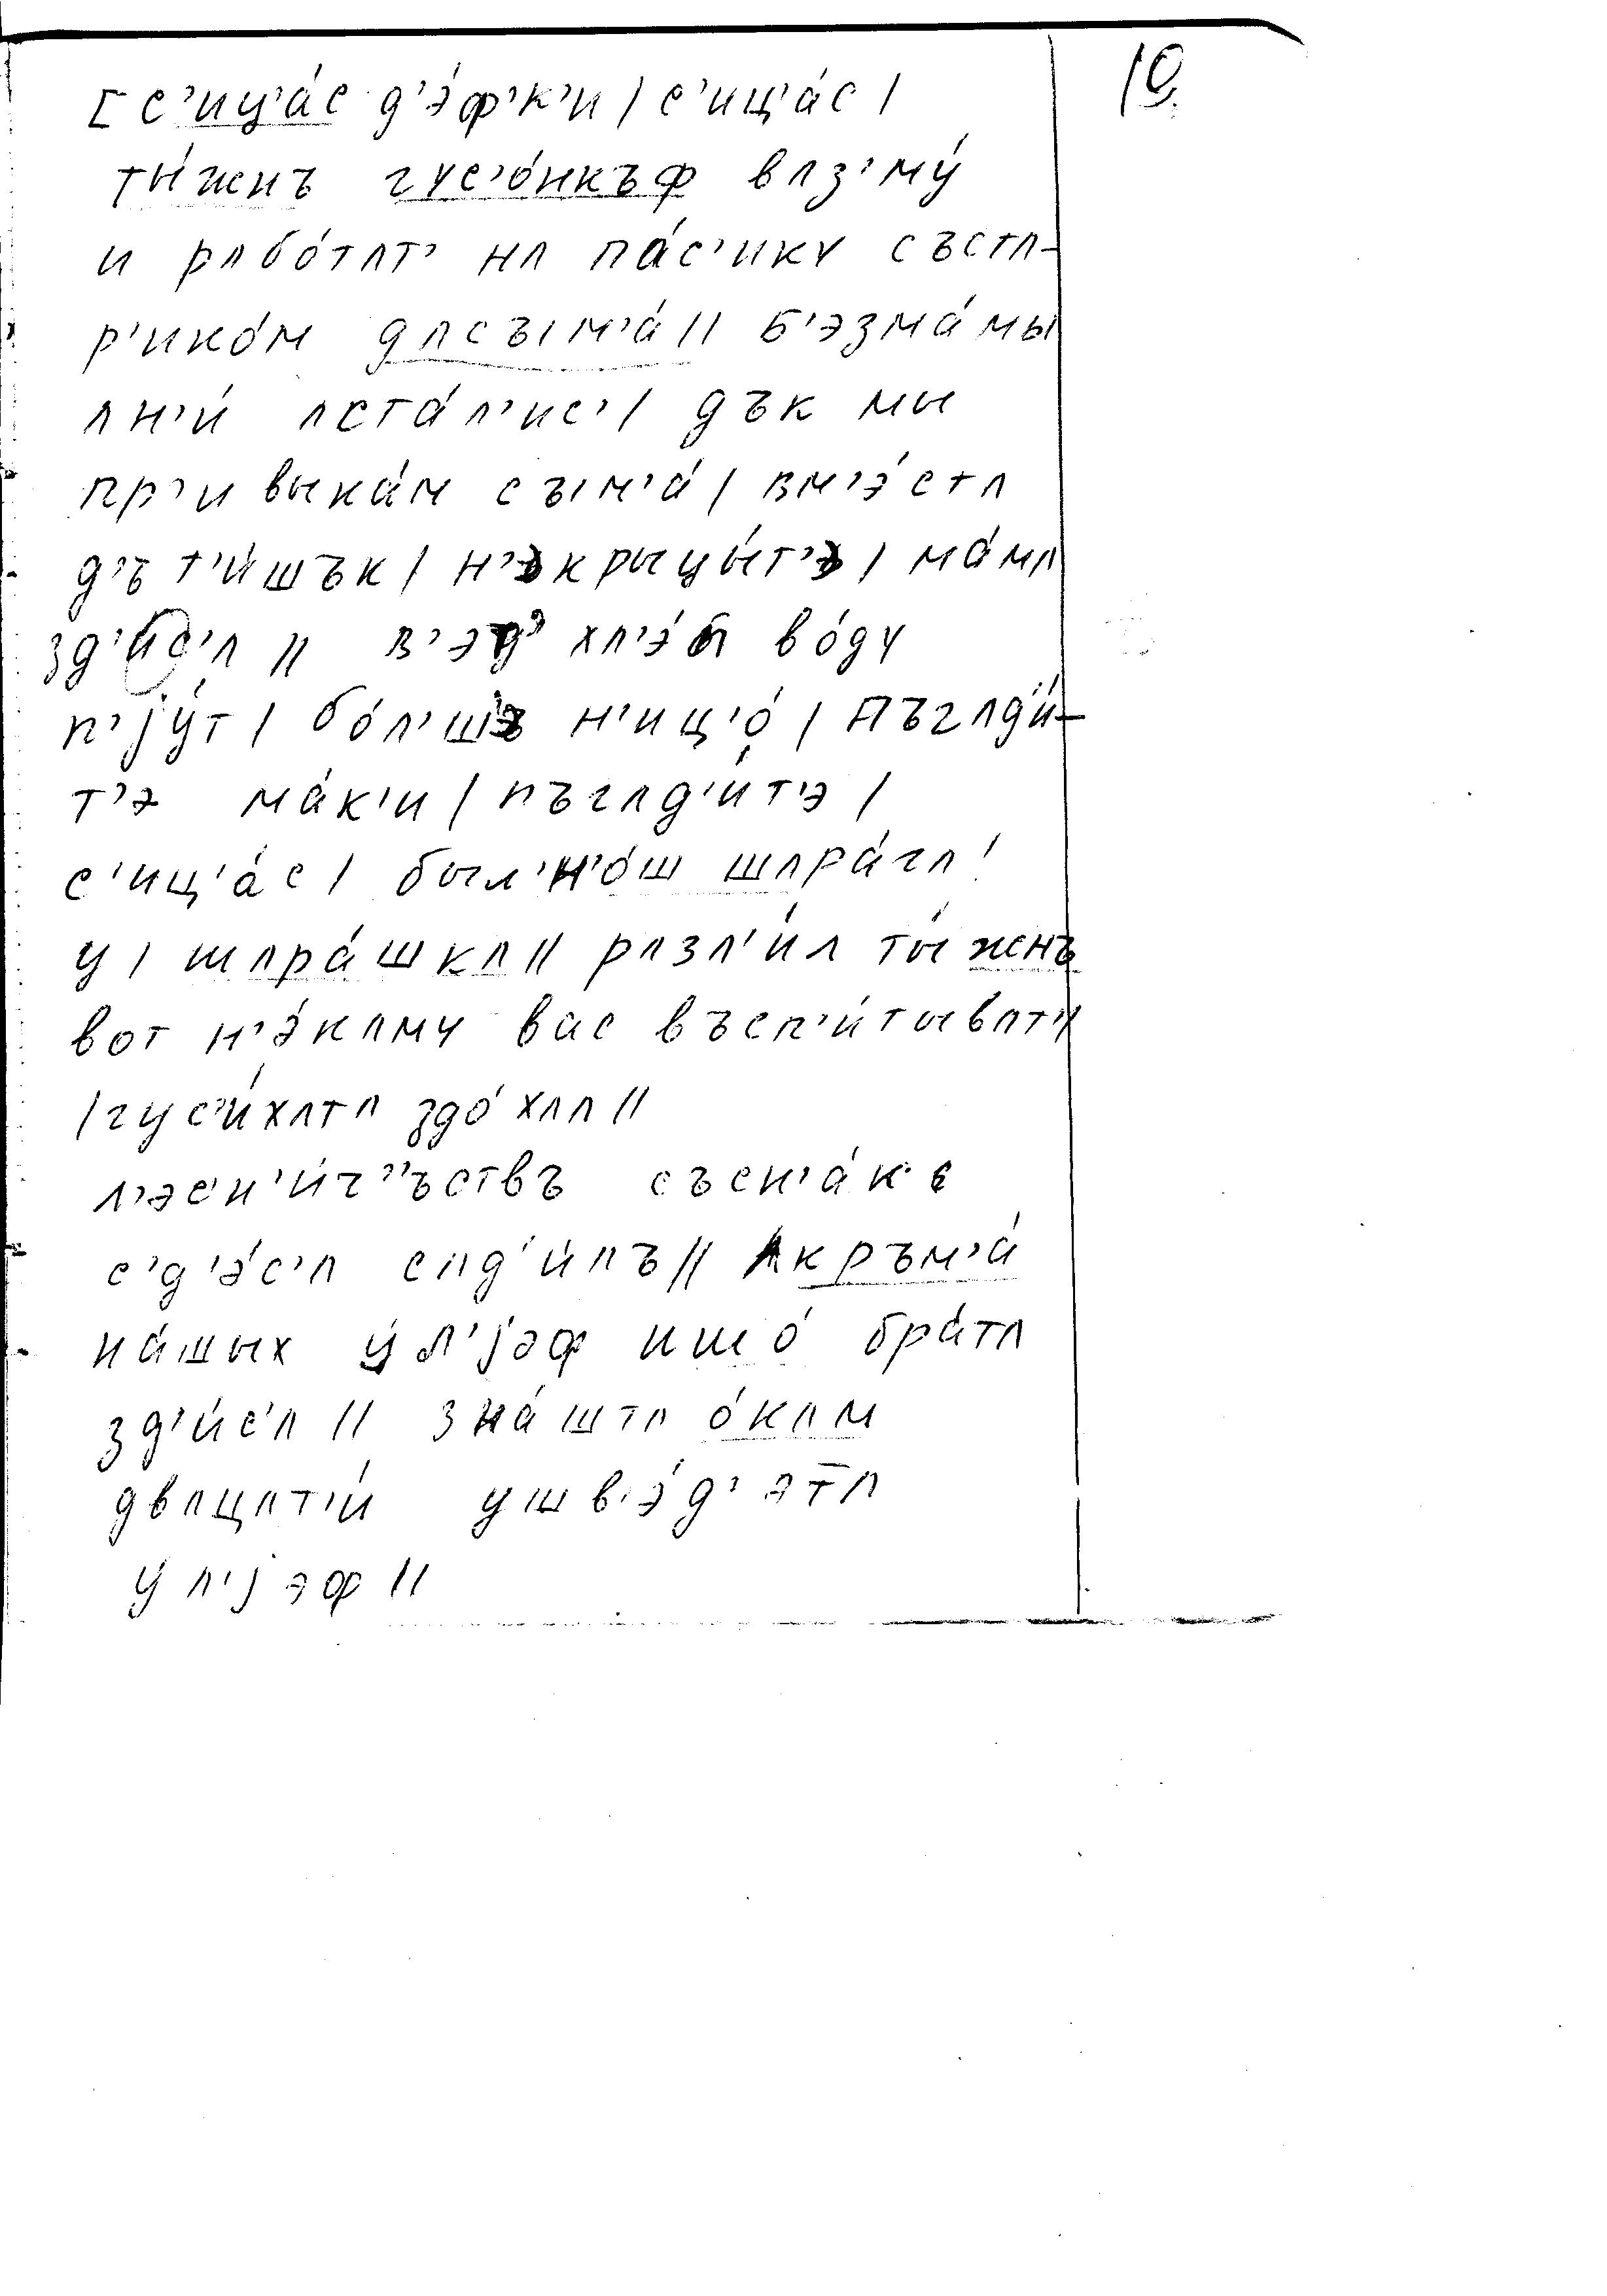 [ с’иц’а́с д’э́ф’к’и | с’иц’а́с |
10.
ты́жнъ гус’о́нкъф вʌз’му́
и рʌбо́тʌт’ нʌ па́с’ику състʌ-
р’ико́м дʌсъım’á || б’эзма́мы
ʌн’и́ ʌста́л’ис’ | дък мы
пр’ивыка́м съım’á | вм’э́стʌ
д’ът’и́шък | н’экрыцы́т’э | ма́мʌ
зд’ис’ʌ || в’эд’ хл’э́б во́ду
п’jу́т | бо́л’шъ н’иц’о́ | Пъглʌд’и́-
т’э ма́к’и | пъглʌд’и́т’э |
с’иц’а́с | был’н’о́ш шʌра́гʌ!
у | шʌра́шкʌ || рʌзл’и́л ты́жнъ
вот н’э́кʌму вас въсп’и́тывʌт’ ||
| гус’и́хʌтʌ здо́хлʌ ||
л’эсн’и́ч’’ъствъ със’н’а́к с
с’д’э́с’ʌ спд’и́лъ || Акръм’á
на́шых у́л’jэф ишо́ бра́тʌ
зд’и́с’ʌ || зна́штʌ о́кʌм
двʌцʌт’и́ ушв’э́д’ эт̅ʌ
у́л’jэф ||